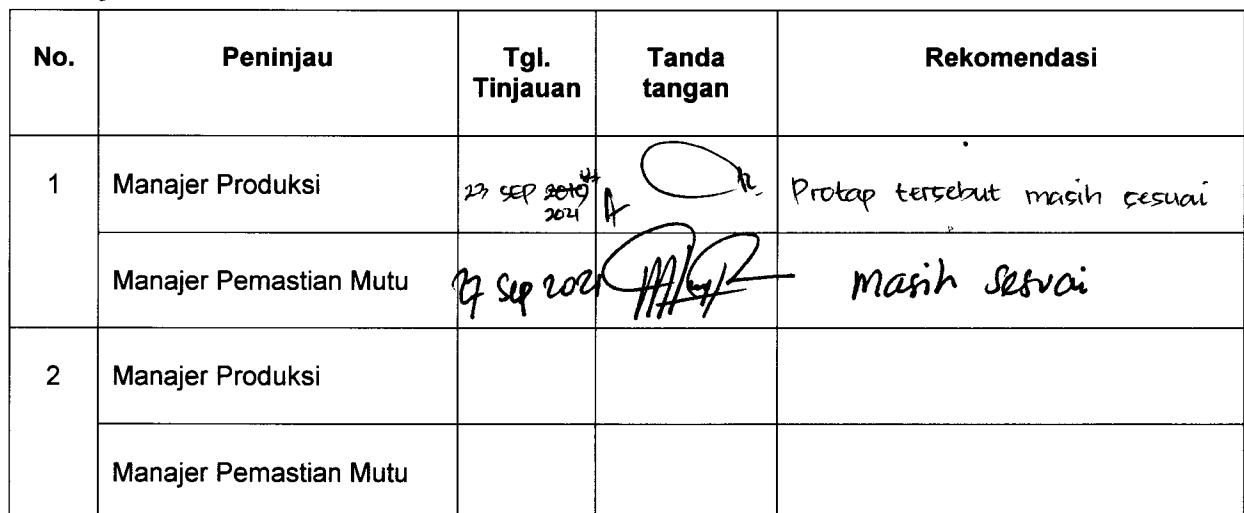 No. Peninjau Tgl. Tinjauan Tanda tangan Rekomendasi
1 Manajer Produksi 23 SEP 2019 2021 Protap tersebut masih sesuai
Manajer Pemastian Mutu 27 Sep 2021 masih sesuai
2 Manajer Produksi
Manajer Pemastian Mutu